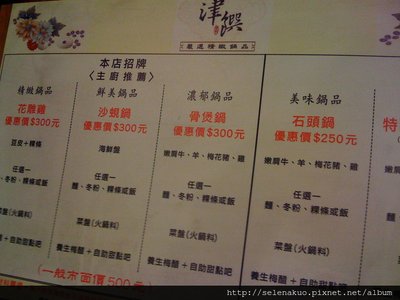 津饌
嚴選精緻鍋品
本店招牌
〈主廚推薦〉
精緻鍋品
花雕雞
優惠價$300元
豆皮+粿條
任選一
麵、冬粉、粿條或飯
菜盤(火鍋料)
養生梅醋+自助甜點吧
鮮美鍋品
沙蜆鍋
優惠價$300元
海鮮盤
任選一
麵、冬粉、粿條或飯
菜盤(火鍋料)
養生梅醋+自助甜點吧
濃郁鍋品
骨煲鍋
優惠價$300元
嫩肩牛、羊、梅花豬、雞
任選一
麵、冬粉、粿條或飯
菜盤(火鍋料)
養生梅醋+自助甜點吧
美味鍋品
石頭鍋
優惠價$250元
嫩肩牛、羊、梅花豬、雞
任選一
麵、冬粉、粿條或飯
菜盤(火鍋料)
養生梅醋+自助甜點吧
特
(一般市面價500元)
http://selenakuo.pixnet.net/album